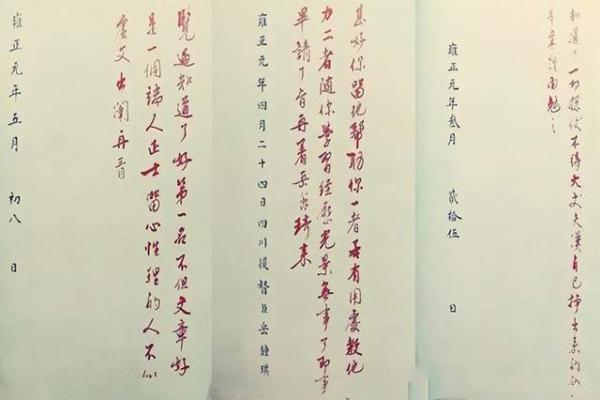 知道了一切 伏不得大丈夫漢自己挣出来的
勉之
雍正元年叁月 貳拾伍 日
甚好你留他帮助你一者若有用處教他
力二者隨你學習經歷光景無事了即事
畢請了旨再著岳 琦来
雍正元年四月二十四日四川提督臣岳鍾琪
覽過知道了好第一名不但文章好
是一個端人正士留心性理的人不似
虚文出闈再
雍正元年五月 初八 日